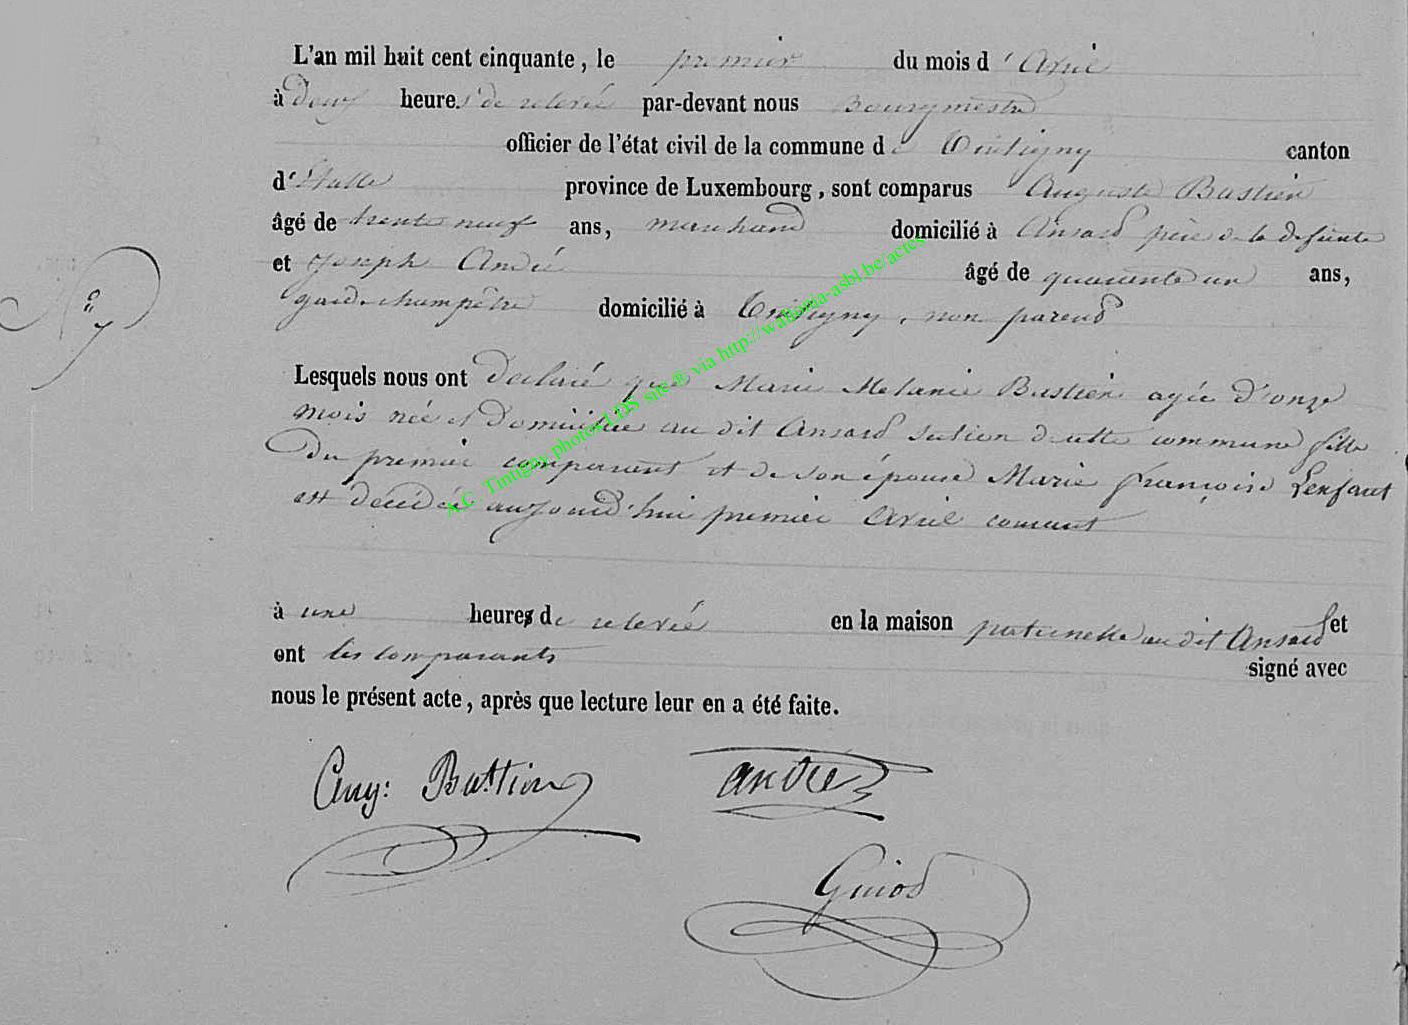 L'an mil huit cent cinquante, le premier du mois d'Avril
à Deux heures de relevée par-devant nous Bourgmestre
officier de l'état civil de la commune de Tintigny canton
d'Etalle province de Luxembourg, sont comparus Auguste Bastien
âgé de trente neuf ans, marchand domicilié à Ansard père de la defunte
et Joseph André âgé de quarante un ans,
garde champêtre domicilié à Tintigny, non parens
N° 7
Lesquels nous ont declaré que Marie Melanie Bastien agée d'onze
mois née et Domiciliée au dit Ansard section de cette commune fille
Du premier comparant et de son épouse Marie Françoise Lenfant
est decédée aujourd'hui premier Avril courant
à une heure de relevée en la maison paternelle au dit Ansard et
ont les comparants signé avec
nous le présent acte, après que lecture leur en a été faite.
Aug: Bastien André
Guiod
A.C. Tintigny photos LDS site ® via http://wallonia-asbl.be/actes